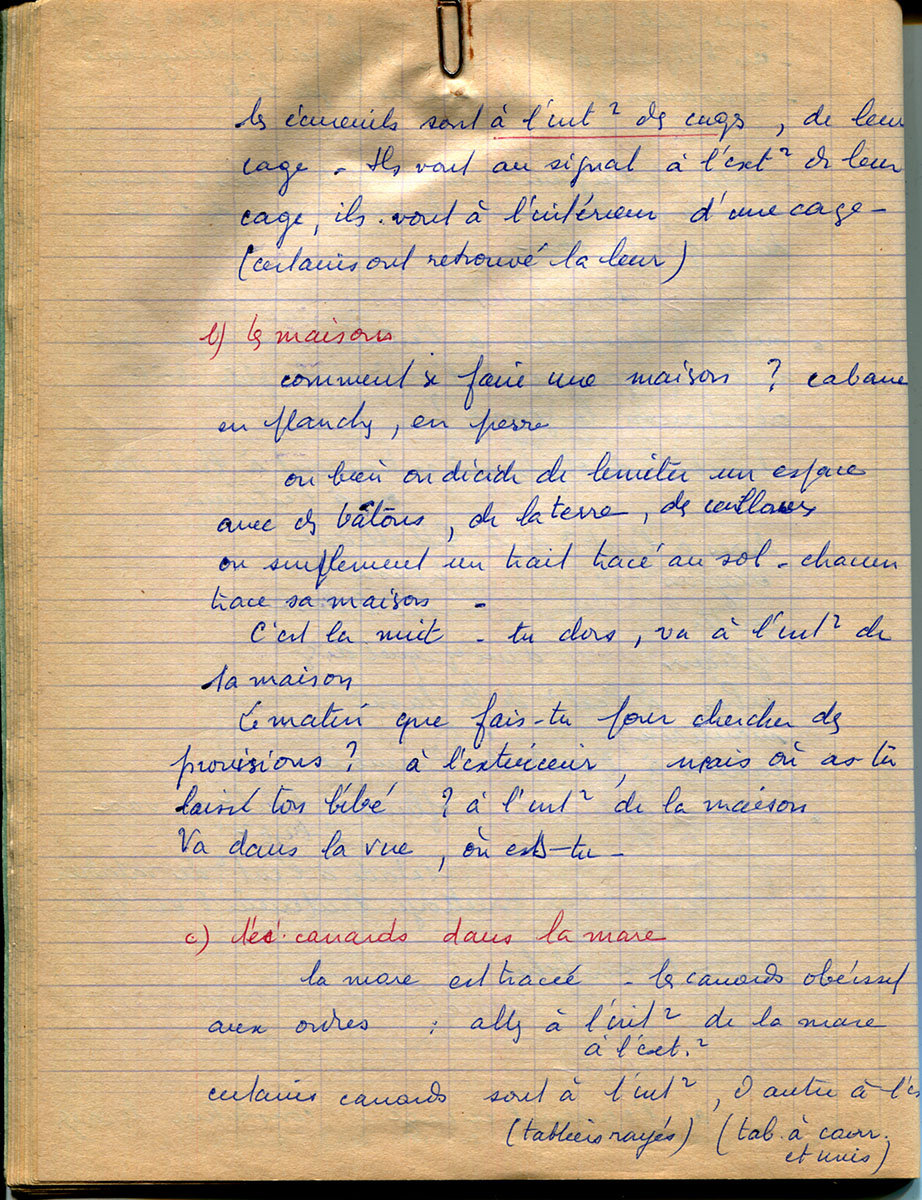 les écureuils sont à l'int² des cages, de leur
cage - Ils vont au signal à l'ext² de leur
cage, ils vont à l'intérieur d'une cage -
(certains ont retrouvé la leur)
b) les maisons
comment se faire une maison ? cabane
en planches, en pierre
ou bien on décide de limiter un espace
avec des bâtons, de la terre, des cailloux
ou simplement un trait tracé au sol - chacun
trace sa maison -
C'est la nuit - tu dors, va à l'int² de
la maison
Le matin que fais-tu pour chercher des
provisions ? à l'extérieur, mais où as-tu
laissé ton bébé ? à l'int² de la maison
Va dans la rue, où es-tu -
c) les canards dans la mare
la mare est tracée - les canards obéissent
aux ordres : allez à l'int² de la mare
à l'ext.²
certains canards sont à l'int², d'autres à l'
(tabliers rayés) (tab. à carr.
et unis)